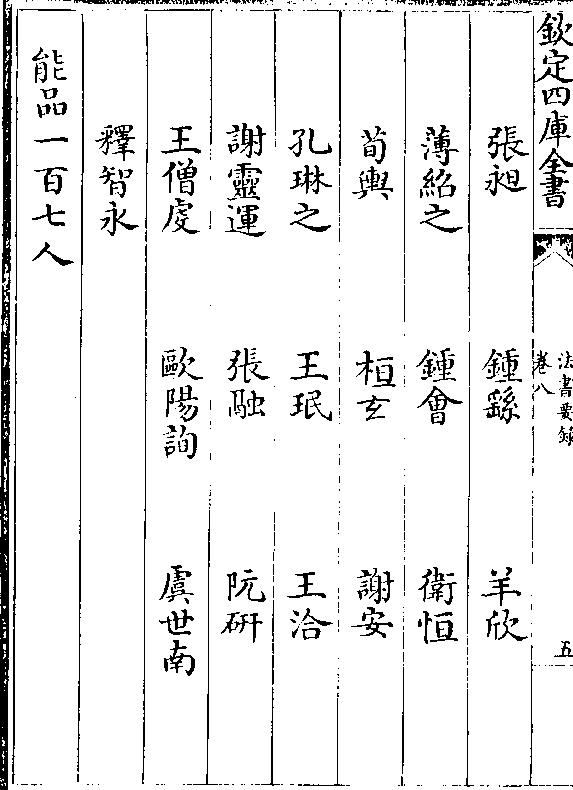 欽定四庫全書
法書要録
卷八
五
張昶 鍾繇 羊欣
薄紹之 鍾會 衛恒
荀輿 桓玄 謝安
孔琳之 王珉 王洽
謝靈運 張融 阮研
王僧虔 歐陽詢 虞世南
釋智永
能品一百七人